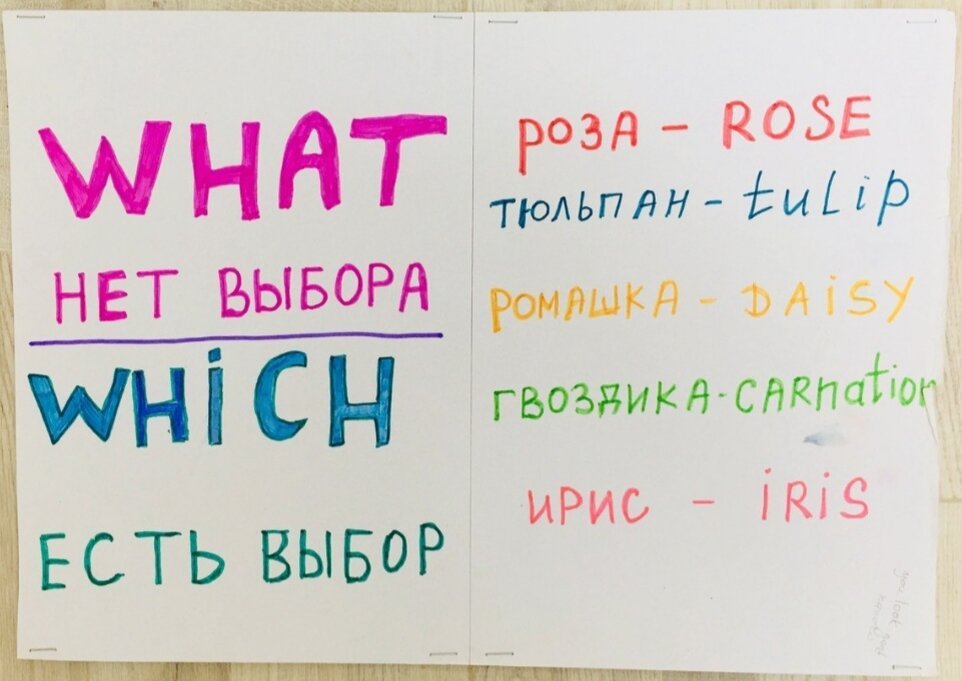 WHAT
НЕТ ВЫБОРА
WHiCH
ЕСТЬ ВЫБОР
РОЗА - ROSE
ТЮЛЬПАН - tuLip
РОМАШКА - DAiSY
ГВОЗДИКА - CARnation
ИРИС - iRiS
you look good